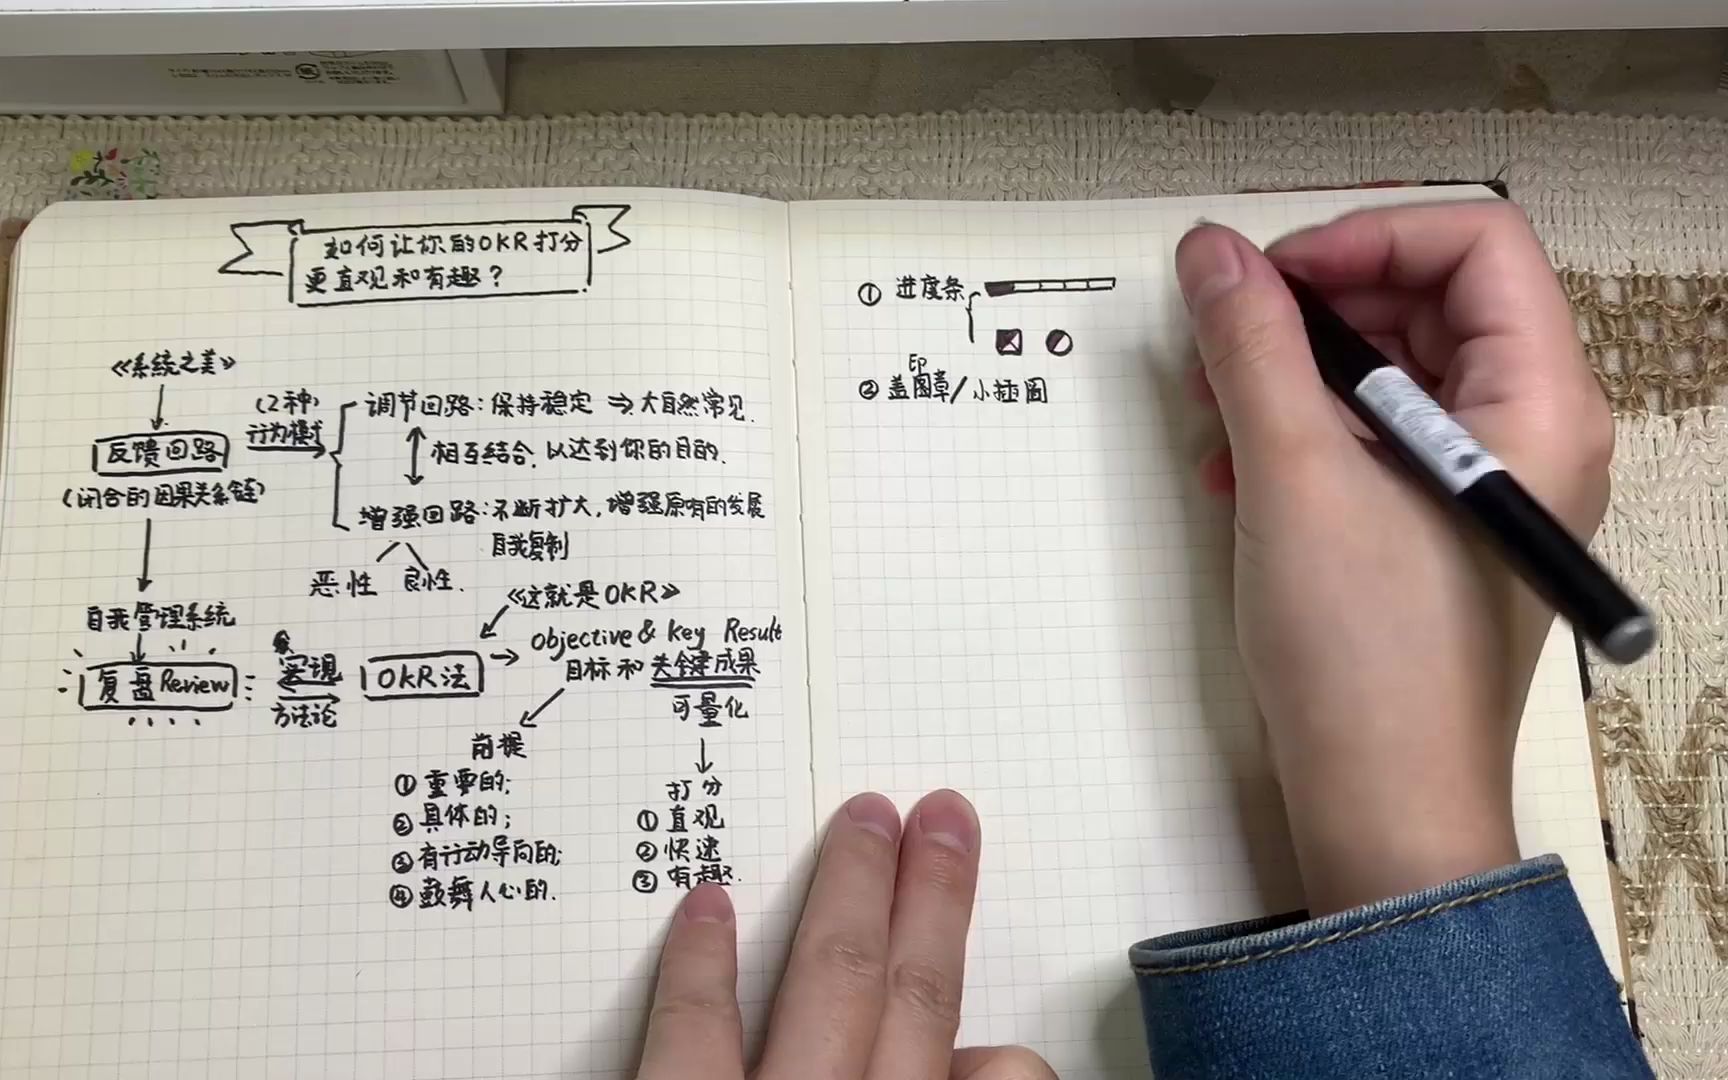 如何让你的OKR打分
更直观和有趣？
《系统之美》
反馈回路
(闭合的因果关系链)
(2种)
行为模式
调节回路：保持稳定 ⇒ 大自然常见.
相互结合，以达到你的目的.
增强回路：不断扩大，增强原有的发展
自我复制
恶性 良性.
自我管理系统
复盘Review
实现
方法论
OKR法
《这就是OKR》
Objective & Key Result
目标和关键成果
可量化
前提
①重要的；
②具体的；
③有行动导向的；
④鼓舞人心的.
打分
①直观
②快速
③有趣.
① 进度条
② 盖图章/小插图
印